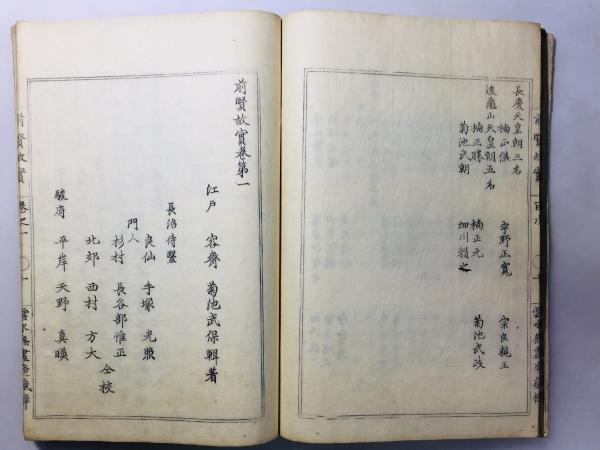 長慶天皇朝三名
楠正儀 宇野正寛 宗良親王
後龜山天皇朝五名
楠正勝 楠正元 菊池武政
菊池武朝 細川頼之
前賢故實
前賢故實卷第一
江戸 容齋 菊池武保輯著
長治侍醫
良仙 手塚 光照
門人
杉村 長谷部惟正
北郊 西村 方大 仝校
駿府 平岸 天野 真暎
前賢故實 卷之一 一